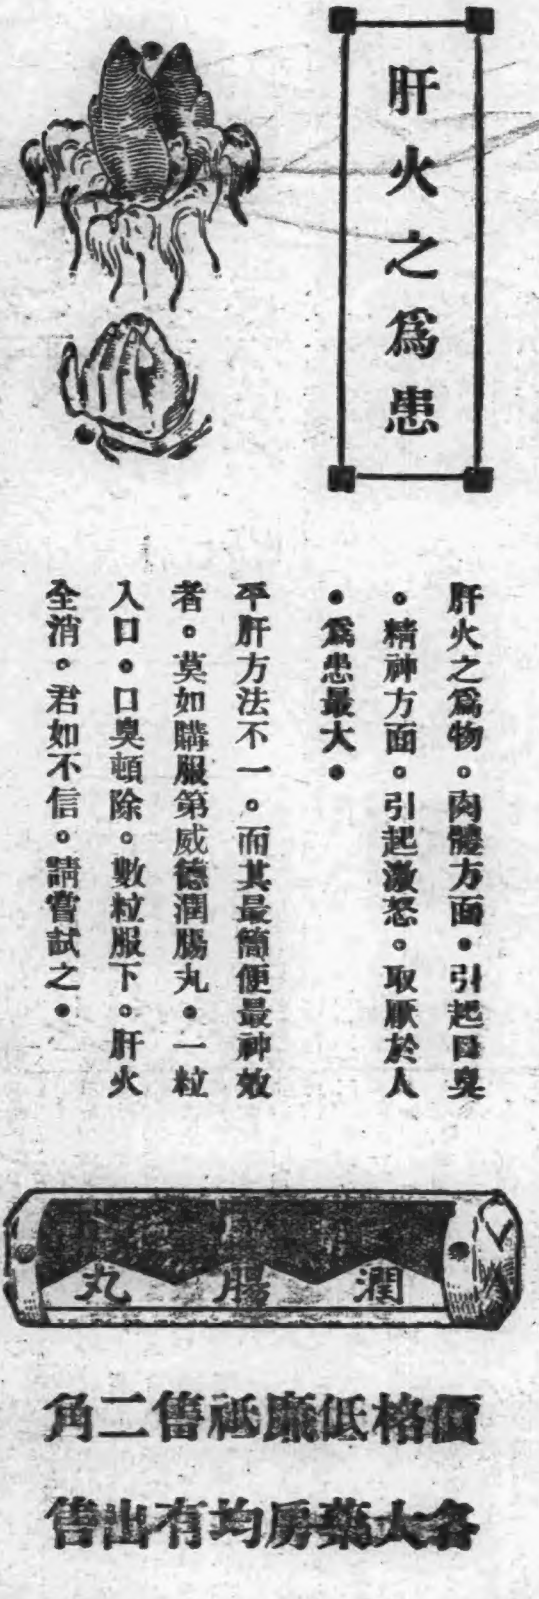 肝火之爲患
肝火之爲物。肉體方面。引起口臭
。精神方面。引起激怒。取厭於人
。爲患最大。
平肝方法不一。而其最簡便最神效
者。莫如購服第威德潤腸丸。一粒
入口。口臭頓除。數粒服下。肝火
全消。君如不信。請嘗試之。
潤腸丸
價格低廉祗售二角
各大藥房均有出售